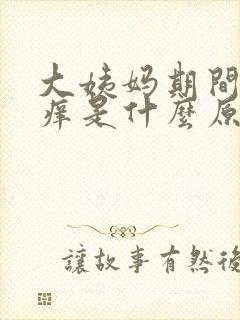 大姨妈期間
痒是什麼原
讓故事有然後